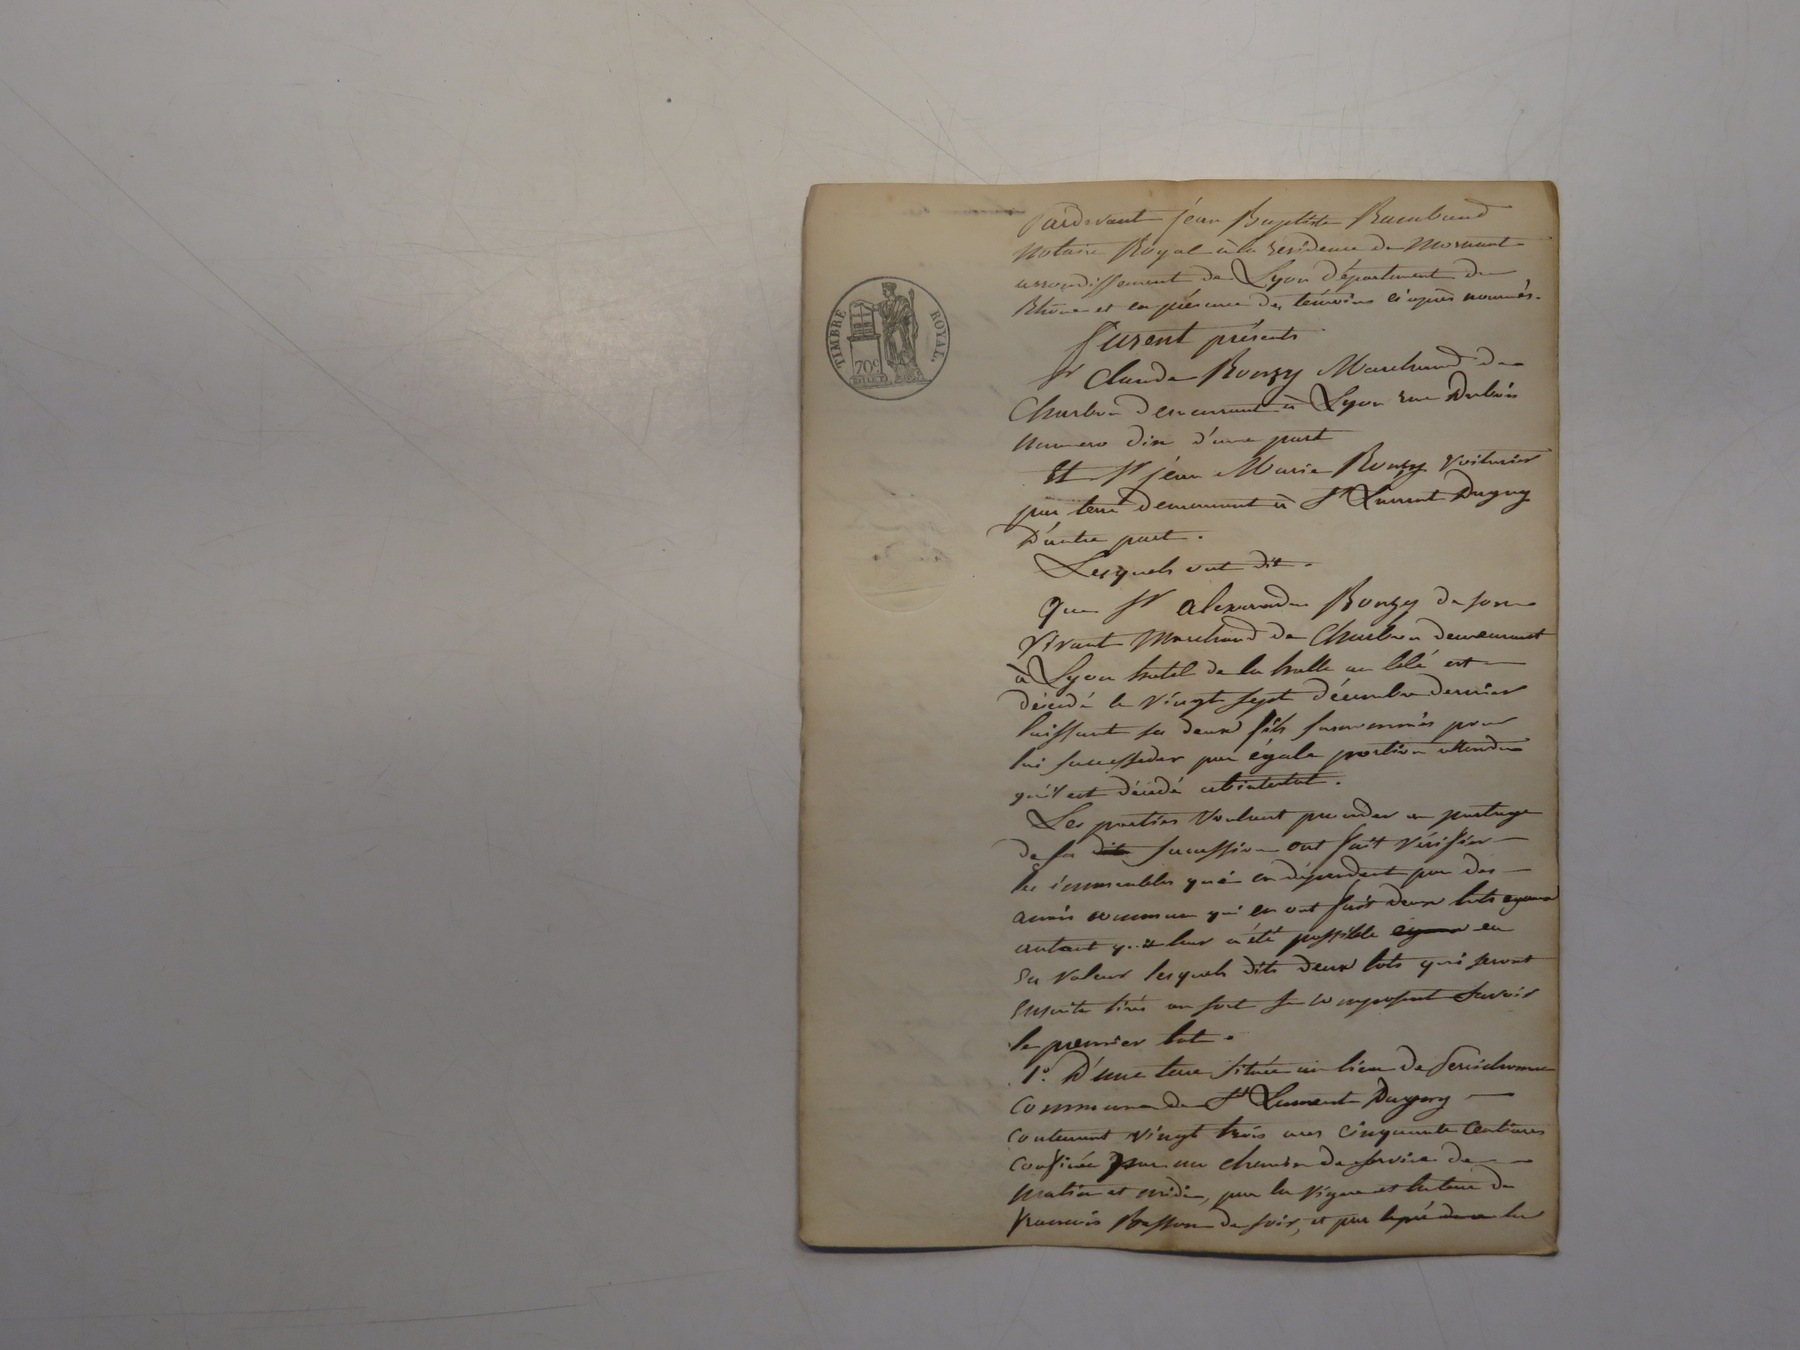 TIMBRE ROYAL.
70c
Pardevant jean Baptiste Raimbaud
Notaire Royal à la résidence de Mornant
arrondissement de Lyon département du
Rhône et en présence des témoins ci après nommés.
furent présents
Sr Claude Bonzy Marchand de
Charbon demeurant à Lyon rue Dubois
numero dix d'une part
Et Sr jean Marie Bonzy voiturier
par terre demeurant à St Laurent Dagny
D'autre part.
Lesquels ont dit.
Que Sr alexandre Bonzy de son
vivant Marchand de Charbon demeurant
à Lyon hotel de la halle au blé est
décédé le vingt sept décembre dernier
laissant ses deux fils susnommés pour
lui succeder par égale portion attendu
qu'il est décédé abintestat.
Les parties voulant proceder au partage
de sa dite succession ont fait vérifier
les immeubles qui en dépendent par des
amis communs qui en ont fait deux lots egaux
autant qu'il leur a été possible egaux en
en valeur lesquels dits deux lots qui seront
ensuite tirés au sort se composent Savoir
le premier lot.
1° D'une terre située au lieu de
commune de St Laurent Dagny
contenant vingt trois ares cinquante Centiares
confinée par un chemin de service de
matin et midi, par la vigne et la terre de
francois Basson de soir, et par la